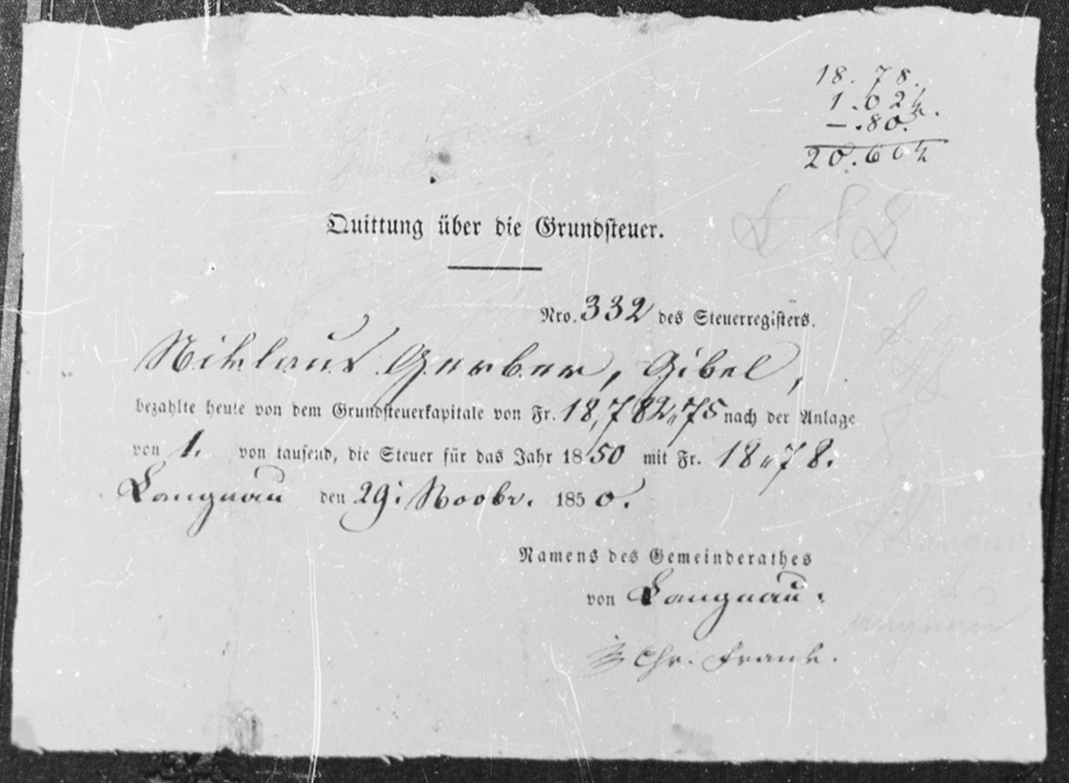 18.78.
1.02½.
—.80.
20.60½
Quittung über die Grundsteuer.
Nro. 332 des Steuerregisters.
Niklaus Gerber, Gibel,
bezahlte heute von dem Grundsteuerkapitale von Fr. 18,782„75 nach der Anlage
von 1. von tausend, die Steuer für das Jahr 1850 mit Fr. 18„78.
Langnau den 29. Novbr. 1850.
Namens des Gemeinderathes
von Langnau.
Chr. Frank.